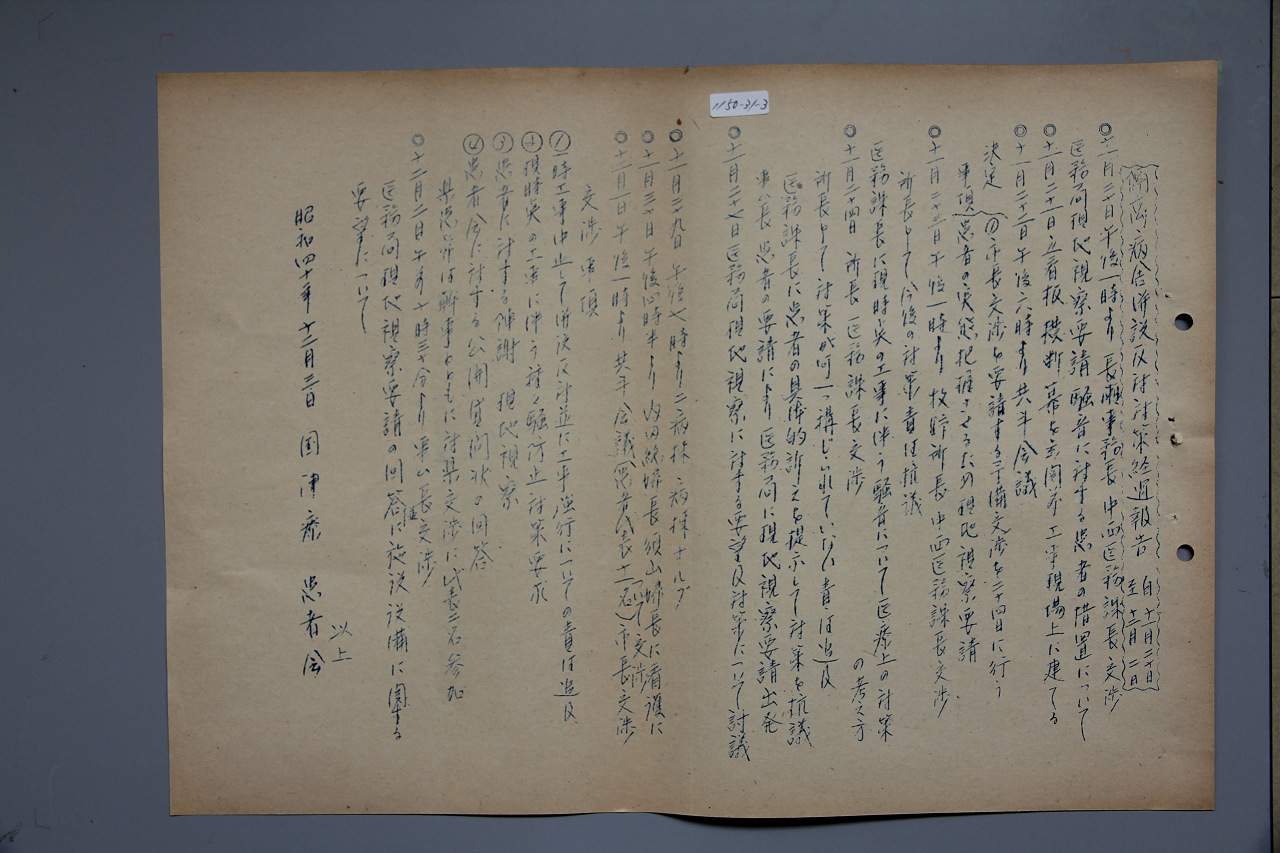 1150-31-3
隔離病舎併設反対対策経過報告 自十一月二十日 至十二月二日
◎十一月二十日午後一時より 長瀬事務長 中西医務課長交渉
医務局現地視察要請 騒音に対する患者の措置について
◎十一月二十一日立看板 横断幕を玄関前 工事現場上に建てる
◎十一月二十二日午後六時より共斗会議
決定事項 (イ)市長交渉を要請する予備交渉を二十四日に行う
患者の実態把握させるため現地視察要請
◎十一月二十三日午後一時より 牧野所長 中西医務課長交渉
所長として今後の対策責任抗議
医務課長に現時点の工事に伴う騒音について医療上の対策の考え方
◎十一月二十四日 所長 医務課長交渉
所長として対策が何一つ構じられていない責任追及
医務課長に患者の具体的訴えを提示して対策を抗議
事ム長 患者の要請により医務局に現地視察要請出発
◎十一月二十七日医務局現地視察に対する要望及対策について討議
◎十一月二十九日 午後七時より二病棟 六病棟
◎十一月三十日 午後四時半より 内田総婦長 須山婦長に看護について交渉
◎十二月一日 午後一時より 共斗会議(患者代表十一名)市長交渉
交渉事項
①一時工事中止して併設反対並に工事強行についての責任追及
②現時点の工事に伴う種々騒防止対策要求
③患者に対する陳謝 現地視察
④患者会に対する公開質問状の回答
県患者は幹事とともに対県交渉に代表二名参加
◎十二月二日 午前十時三十分より事ム長交渉
医務局現地視察要請の回答並に施設設備に関する
要望について
以上
昭和四十年十二月三日 国津療 患者会